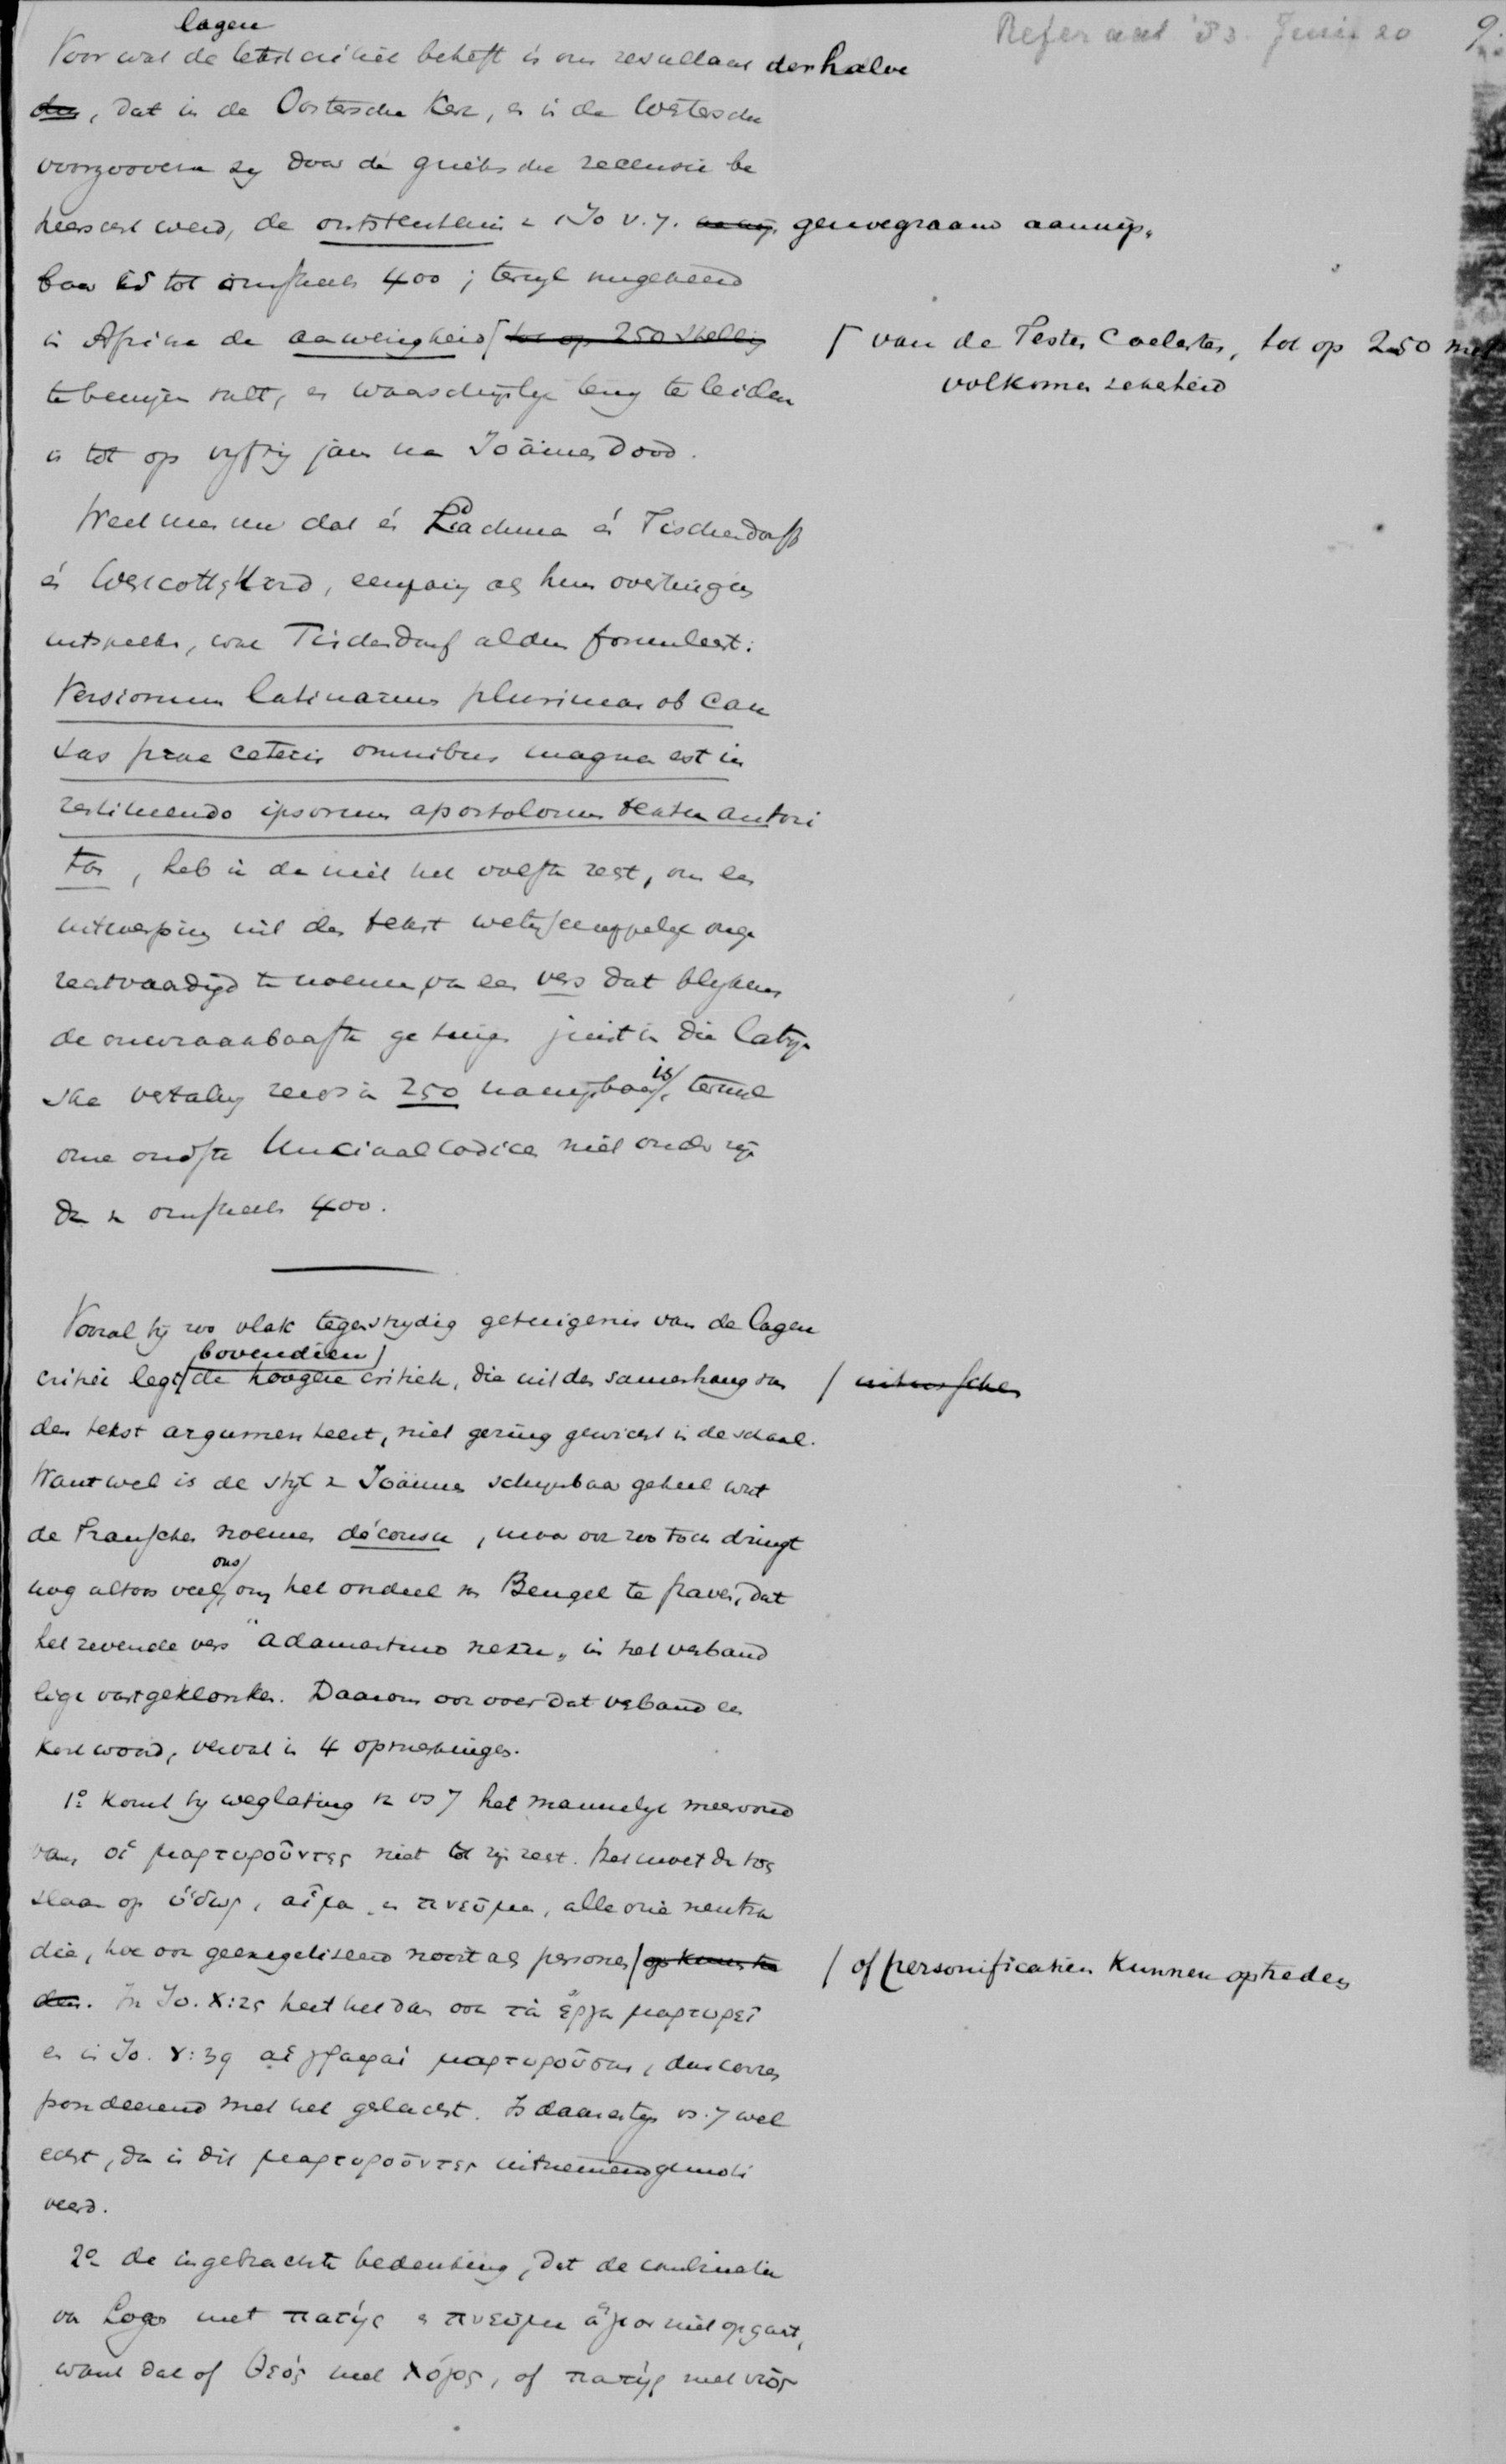 Referaat '83. Junij 20 9.
lagere
Voor wat de tekstcritiek betreft is ons resultaat derhalve
dus, dat in de Oostersche Kerk, en in de Westersche
voorzooverre zij door de grieksche recensie be
heerscht werd, de ontstentenis v. 1 Jo V. 7. genoegzaam aannemp.
baar is tot omstreeks 400; terwyl omgekeerd
in Afrika de aanwezigheid tot op 250 stellig
⌈ van de Testes Coelestes, tot op 250 met
volkomen zekerheid
te bewyzen valt, en waarschynlyk terug te leiden
is tot op vyftig jaar na Joännes dood.
Weet men nu dat én Lachman én Tischendorff
én Wescott & Hord, eenparig als hun overtuiging
uitspreken, wat Tischendorf aldus formuleert:
Versionum latinarum plurimas ob cau
sas prae ceteris omnibus magna est in
restituendo ipsorum apostolorum textu autori
tas, heb ik dan niet het volste regt, om een
uitwerping uit den tekst wetenschappelyk onge
regtvaardigd te noemen, van een vers dat blykens
de onwraakbaarste getuigen juist in die latyn
sche vertaling reeds in 250 aanwysbaar is, terwyl
onze oudste Unciaalcodices niet ouder zyn
dan v. omstreeks 400.
Vooral by zoo vlak tegenstrydig getuigenis van de lagere
bovendien
critiek legt de hoogere critiek, die uit den samenhang van
den tekst argumenteert, niet gering gewicht in de schaal.
Want wel is de styl v. Joännes schynbaar geheel wat
de Franschen noemen décousu, maar ook zoo toch dringt
ons
nog altoos veel, om het oordeel van Bengel te staven, dat
het zevende vers "adamantino nexu„ in het verband
ligt vastgeklonken. Daarom ook over dat verband een
kort woord, vervat in 4 opmerkingen.
1° Komt by weglating v. vs 7 het mannelyk meervoud
van οἱ μαρτυροῦντες niet tot zyn regt. Het moet dan toch
slaan op ὕδωρ, αἷμα en πνεῦμα, alle drie neutra
die, hoe ook geexegetiseerd nooit als personen
/ of personificatien kunnen optreden
den. In Jo. X:25 heet het dan ook τὰ ἔργα μαρτυρεῖ
en in Jo. V:39 αἱ γραφαὶ μαρτυροῦσαι, dus corres
pondeerend met het geslacht. Is daarentegen vs. 7 wel
echt, dan is dit μαρτυροῦντες uitnemend gemoti
veerd.
2° de ingebrachte bedenking, dat de combinatie
van Logos met πατήρ en πνεῦμα ἅγιον niet opgaat,
want dat of Θεός met λόγος, of πατήρ met υἱός